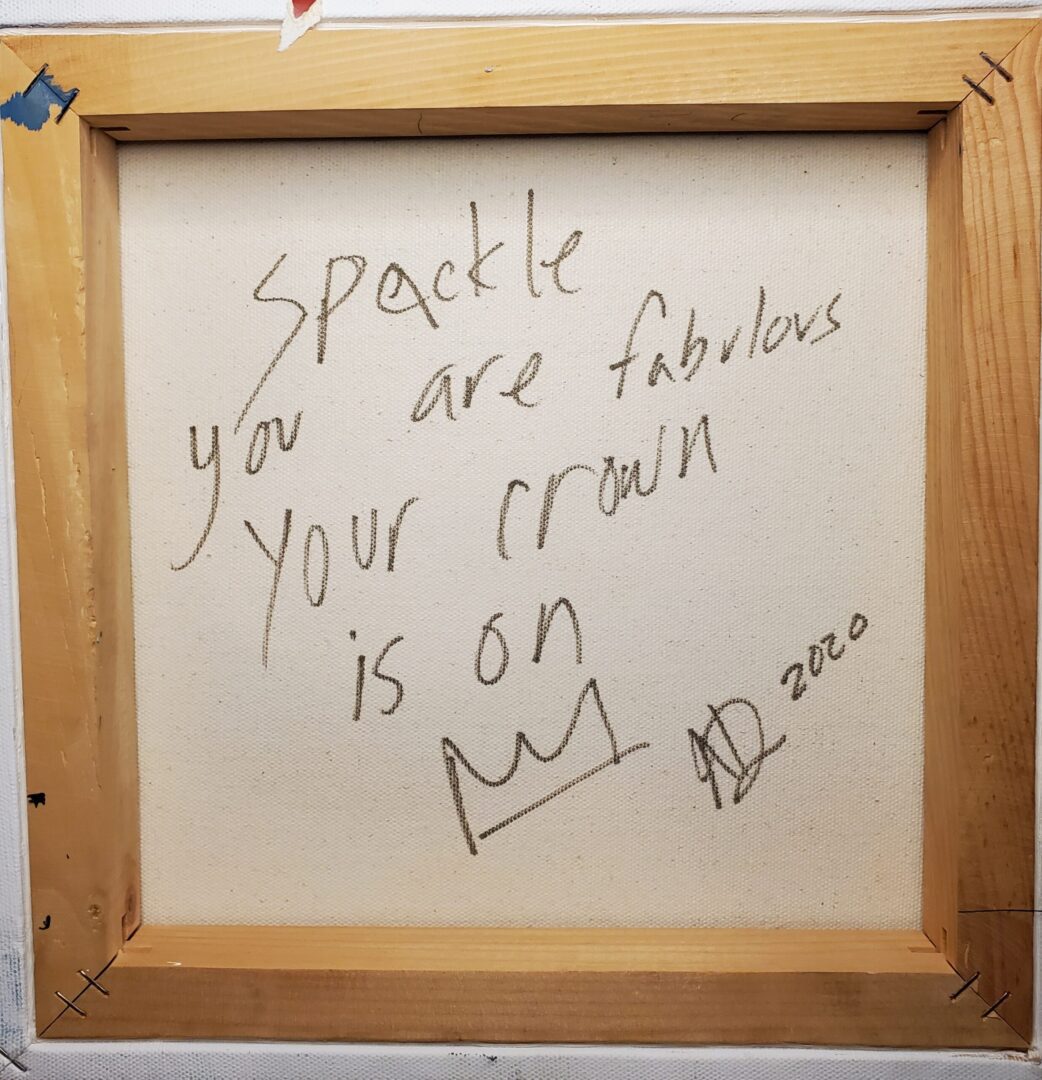 Spackle
you are fabulous
Your crown
is on
AD 2020